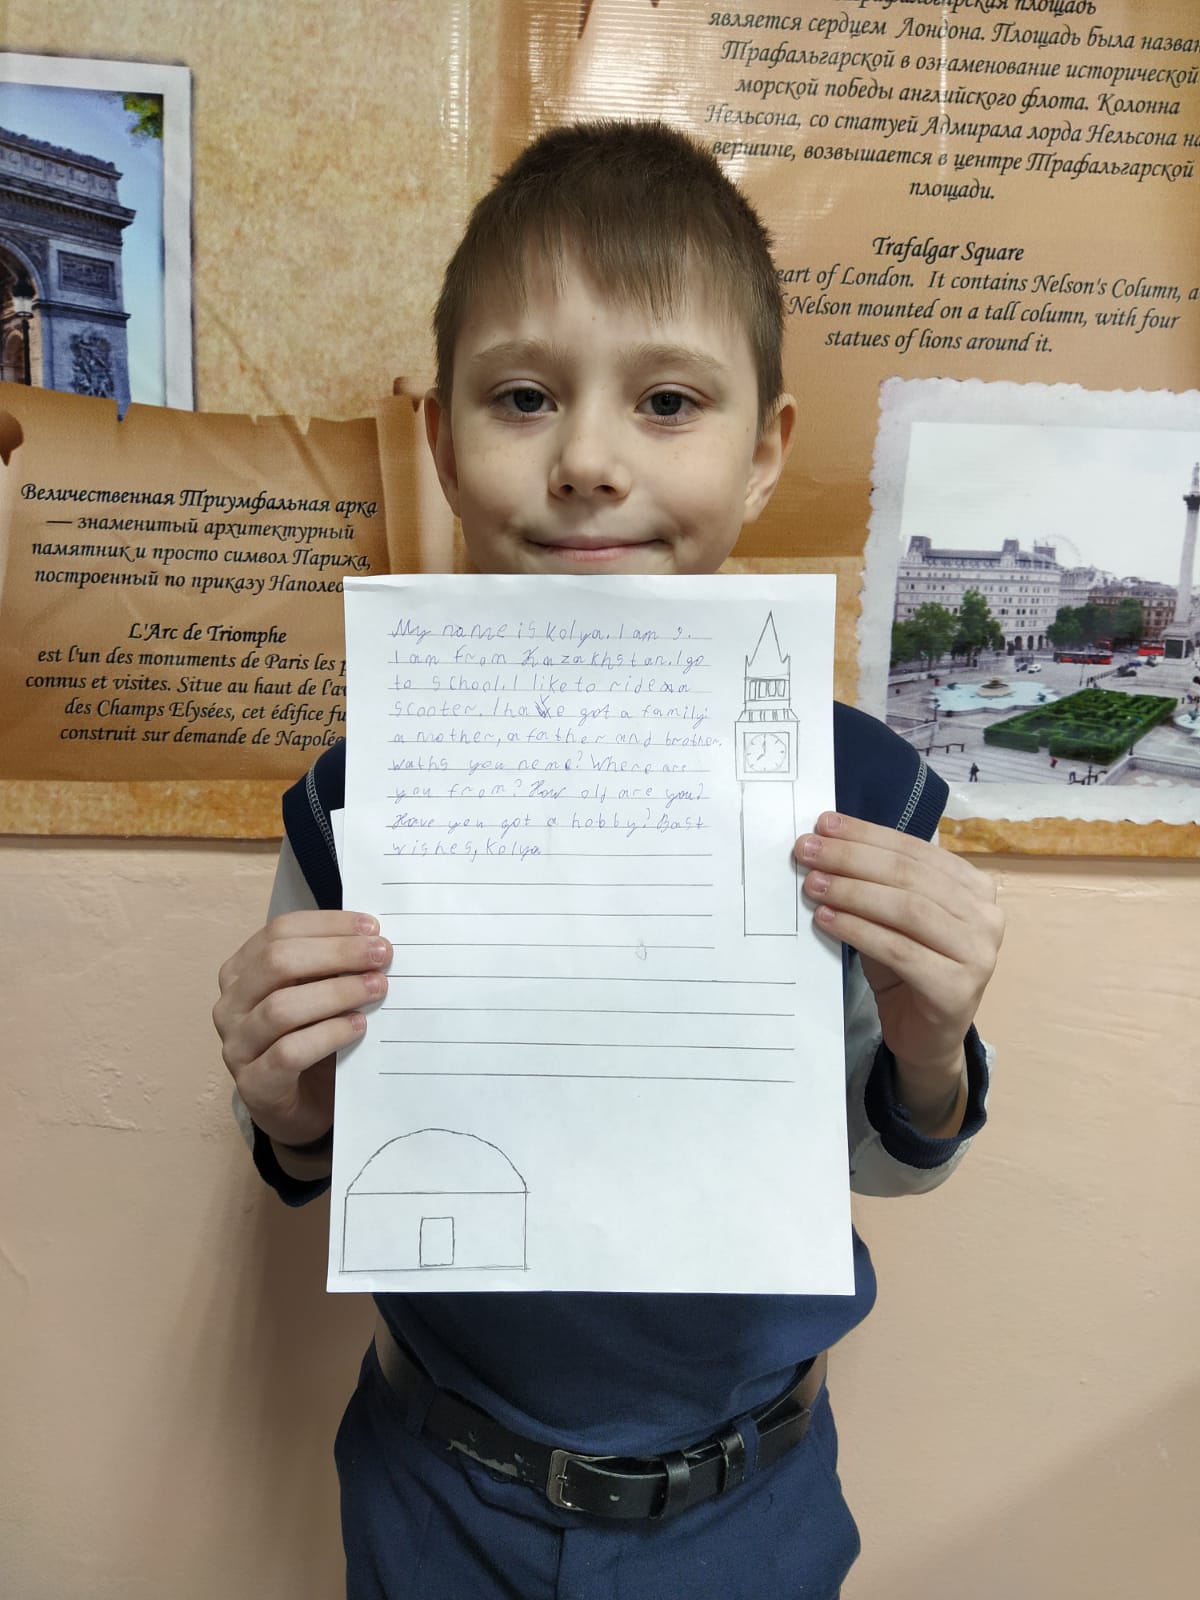 Трафальгарская площадь
является сердцем Лондона. Площадь была назван
Трафальгарской в ознаменование исторической
морской победы английского флота. Колонна
Нельсона, со статуей Адмирала лорда Нельсона на
вершине, возвышается в центре Трафальгарской
площади.
Trafalgar Square
eart of London. It contains Nelson's Column, a
Nelson mounted on a tall column, with four
statues of lions around it.
Величественная Триумфальная арка
— знаменитый архитектурный
памятник и просто символ Парижа,
построенный по приказу Наполео
L'Arc de Triomphe
est l'un des monuments de Paris les p
connus et visites. Situe au haut de l'av
des Champs Elysées, cet édifice fu
construit sur demande de Napoléo
My name is Kolya. I am 9.
I am from Kazakhstan. I go
to school. I like to ride a
scooter. I have got a family:
a mother, a father and brother.
waths you neme? Where are
you from? How old are you?
Have you got a hobby? Bast
wishes, Kolya